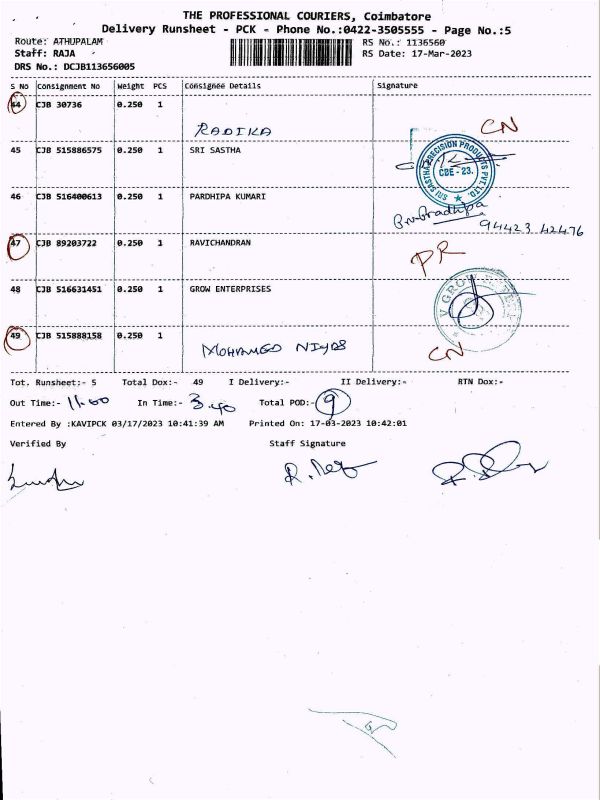 THE PROFESSIONAL COURIERS, Coimbatore
Delivery Runsheet - PCK - Phone No.:0422-3505555 - Page No.:5
Route: ATHUPALAM RS No.: 1136560
Staff: RAJA RS Date: 17-Mar-2023
DRS No.: DCJB113656005
S No Consignment No Weight PCS Consignee Details Signature
44 CJB 30736 0.250 1
RADIKA CN
45 CJB 515886575 0.250 1 SRI SASTHA
SRI SASTHA PRECISION PRODUCTS PVT LTD.
CBE - 23.
46 CJB 516400613 0.250 1 PARDHIPA KUMARI
94423 42476
47 CJB 89203722 0.250 1 RAVICHANDRAN
PR
48 CJB 516631451 0.250 1 GROW ENTERPRISES
V GROW
49 CJB 515888158 0.250 1
MOHAMED NIYAS CN
Tot. Runsheet:- 5 Total Dox:- 49 I Delivery:- II Delivery:- RTN Dox:-
Out Time:- 11.00 In Time:- 3.40 Total POD:- 9
Entered By :KAVIPCK 03/17/2023 10:41:39 AM Printed On: 17-03-2023 10:42:01
Verified By Staff Signature